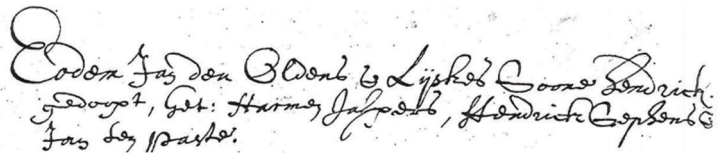 Eodem Jan den Oldens & Lijskes Soone Hendrick
gedoopt, Get: Harmen Jaspers, Hendrick Gerkens &
Jan ten Paste.